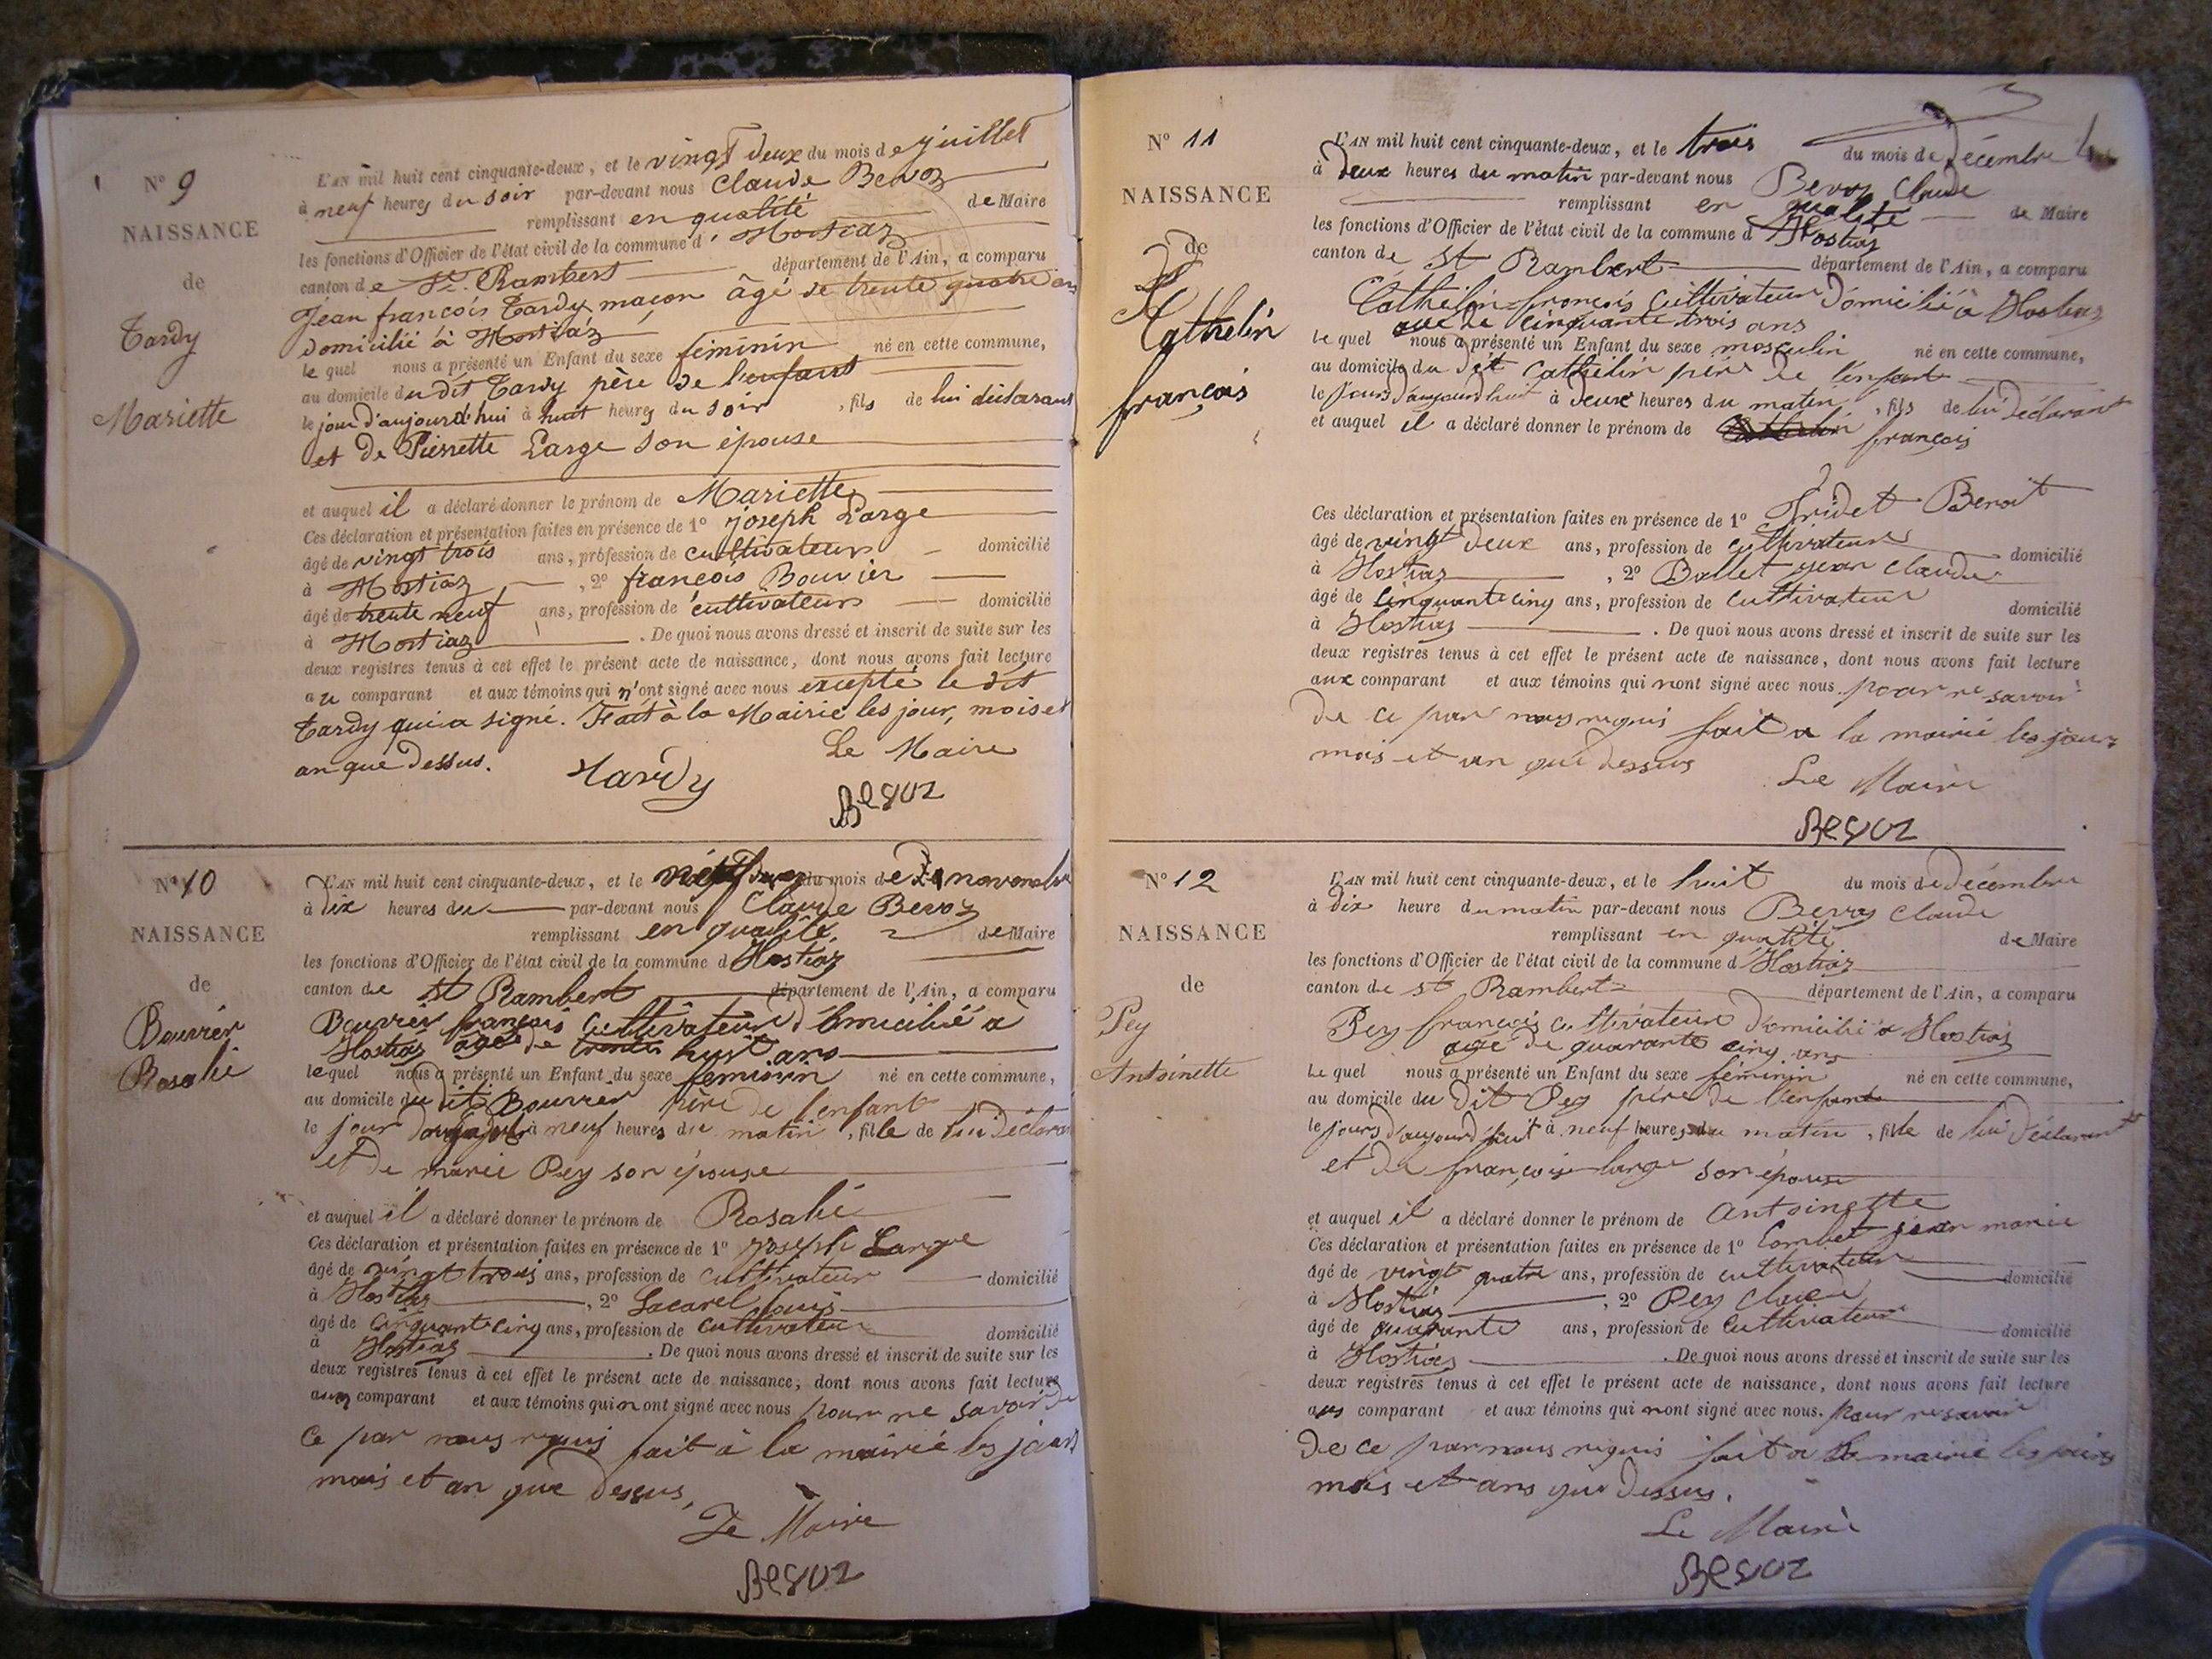 N° 9
NAISSANCE
de
Tardy
Mariette
L'AN mil huit cent cinquante-deux, et le vingt deux du mois de juillet
à neuf heures du soir par-devant nous Claude Bevoz
remplissant en qualité de Maire
les fonctions d'Officier de l'état civil de la commune d' Hostiaz
canton de St. Rambert département de l'Ain, a comparu
Jean françois Tardy maçon âgé de trente quatre ans
domicilié à Hostiaz
le quel nous a présenté un Enfant du sexe féminin né en cette commune,
au domicile du dit Tardy père de l'enfant
le jour d'aujourd'hui à huit heures du soir, fils de lui déclarant
et de Pierrette Large son épouse
et auquel il a déclaré donner le prénom de Mariette
Ces déclaration et présentation faites en présence de 1° joseph Large
âgé de vingt trois ans, profession de cultivateur domicilié
à Hostiaz, 2° françois Bouvier
âgé de trente neuf ans, profession de cultivateur domicilié
à Hostiaz. De quoi nous avons dressé et inscrit de suite sur les
deux registres tenus à cet effet le présent acte de naissance, dont nous avons fait lecture
au comparant et aux témoins qui n'ont signé avec nous excepté le dit
Tardy qui a signé. Fait à la Mairie les jour, mois et
an que dessus. Le Maire
Tardy
Bevoz
N° 10
NAISSANCE
de
Bouvier
Rosalie
L'AN mil huit cent cinquante-deux, et le du mois de novembre
à dix heures du par-devant nous Claude Bevoz
remplissant en qualité de Maire
les fonctions d'Officier de l'état civil de la commune d Hostiaz
canton de St Rambert département de l'Ain, a comparu
Bouvier françois cultivateur domicilié a
Hostiaz âgé de trente huit ans
le quel nous a présenté un Enfant du sexe feminin né en cette commune,
au domicile du dit Bouvier père de l'enfant
le jour à neuf heures du matin, fille de lui déclarant
et de marie Pey son épouse
et auquel il a déclaré donner le prénom de Rosalie
Ces déclaration et présentation faites en présence de 1° joseph Large
âgé de vingt trois ans, profession de cultivateur domicilié
à Hostiaz, 2° Lacarel louis
âgé de cinquante cinq ans, profession de cultivateur domicilié
à Hostiaz. De quoi nous avons dressé et inscrit de suite sur les
deux registres tenus à cet effet le présent acte de naissance, dont nous avons fait lecture
aux comparant et aux témoins qui n ont signé avec nous pour ne savoir de
ce par nous requis fait à la mairie les jours
mois et an que dessus,
Le Maire
Bevoz
N° 11
NAISSANCE
de
Cathelin
françois
L'AN mil huit cent cinquante-deux, et le trois du mois de Décembre
à deux heures du matin par-devant nous Bevoz Claude
remplissant en qualité de Maire
les fonctions d'Officier de l'état civil de la commune d Hostiaz
canton de St Rambert département de l'Ain, a comparu
Cathelin françois cultivateur domicilié à Hostiaz
agé de cinquante trois ans
le quel nous a présenté un Enfant du sexe masculin né en cette commune,
au domicile du dit Cathelin père de l'enfant
le jours d'aujourd'huit à deux heures du matin, fils de lui déclarant
et auquel il a déclaré donner le prénom de françois
Ces déclaration et présentation faites en présence de 1° Tridet Benoit
âgé de vingt deux ans, profession de cultivateur domicilié
à Hostiaz, 2° Ballet jean claude
âgé de cinquante cinq ans, profession de cultivateur domicilié
à Hostiaz. De quoi nous avons dressé et inscrit de suite sur les
deux registres tenus à cet effet le présent acte de naissance, dont nous avons fait lecture
aux comparant et aux témoins qui n ont signé avec nous pour ne savoir
de ce par nous requis fait a la mairie les jours
mois et an que dessus Le Maire
Bevoz
N° 12
NAISSANCE
de
Pey
Antoinette
L'AN mil huit cent cinquante-deux, et le huit du mois de décembre
à dix heure du matin par-devant nous Bevoz Claude
remplissant en qualité de Maire
les fonctions d'Officier de l'état civil de la commune d Hostiaz
canton de St Rambert département de l'Ain, a comparu
Pey françois cultivateur domicilié a Hostiaz
agé de quarante cinq ans
le quel nous a présenté un Enfant du sexe féminin né en cette commune,
au domicile du dit Pey père de l'enfant
le jours d'aujourd'huit à neuf heures du matin, fille de lui déclarant
et de françoise large son épouse
et auquel il a déclaré donner le prénom de Antoinette
Ces déclaration et présentation faites en présence de 1° Combet jean marie
âgé de vingt quatre ans, profession de cultivateur domicilié
à Hostiaz, 2° Pey Claude
âgé de quarante ans, profession de cultivateur domicilié
à Hostiaz. De quoi nous avons dressé et inscrit de suite sur les
deux registres tenus à cet effet le présent acte de naissance, dont nous avons fait lecture
aux comparant et aux témoins qui n ont signé avec nous. pour ne savoir
de ce par nous requis fait a la mairie les jours
mois et ans que dessus.
Le Maire
Bevoz